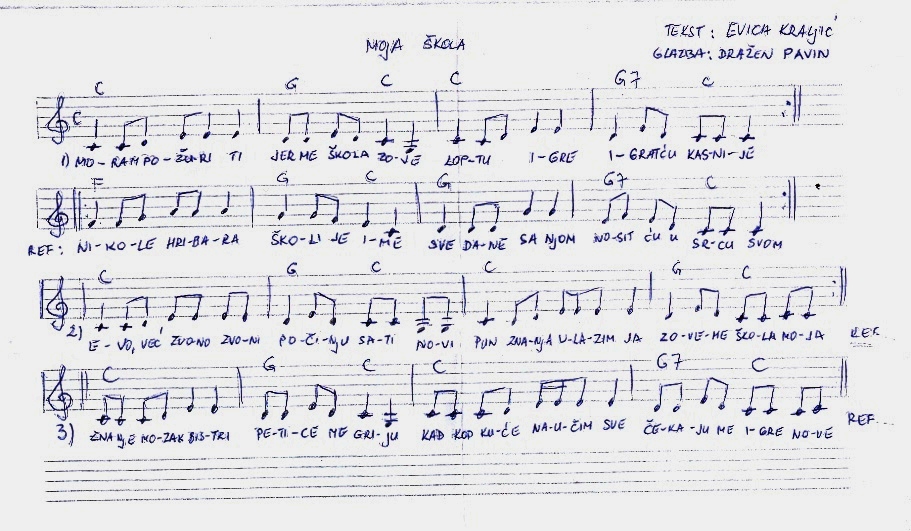 MOJA ŠKOLA
TEKST: EVICA KRALJIĆ
GLAZBA: DRAŽEN PAVIN
C G C C G7 C
1) MO-RAM PO-ŽU-RI TI JER ME ŠKOLA ZO-VE LOP-TU I-GRE I-GRATĆU KAS-NI-JE
F G C G G7 C
REF: NI-KO-LE HRI-BA-RA ŠKO-LI JE I-ME SVE DA-NE SA NJOM NO-SIT ĆU U SR-CU SVOM
C G C C G C
2) E-VO, VEĆ ZVO-NO ZVO-NI PO-ČI-NJU SA-TI NO-VI PUN ZNA-NJA U-LA-ZIM JA ZO-VE-ME ŠKO-LA MO-JA REF.
C G C G7 C
3) ZNANJE MO-ZAK BIS-TRI PE-TI-CE ME GRI-JU KAD KOD KU-ĆE NA-U-ČIM SVE ČE-KA-JU ME I-GRE NO-VE REF.